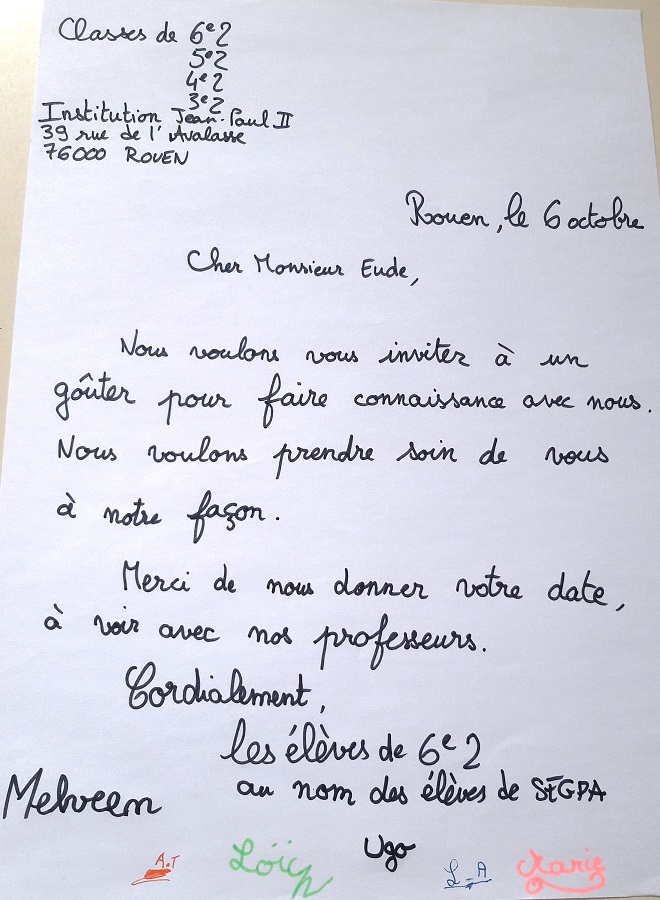 Classes de 6e2
5e2
4e2
3e2
Institution Jean-Paul II
39 rue de l'Avalasse
76000 ROUEN
Rouen, le 6 octobre
Cher Monsieur Eude,
Nous voulons vous inviter à un
goûter pour faire connaissance avec nous.
Nous voulons prendre soin de vous
à notre façon.
Merci de nous donner votre date,
à voir avec nos professeurs.
Cordialement,
les élèves de 6e2
au nom des élèves de SEGPA
A.T
Ugo
L-A